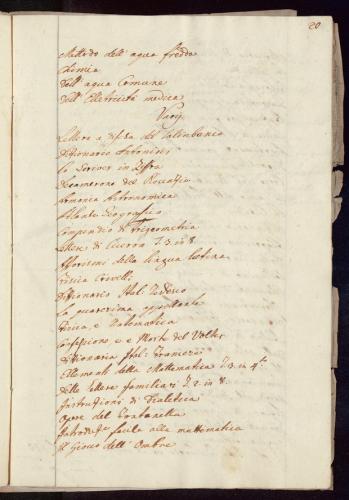 20
Mettodo dell'aqua fredda
Chimia
Dell'aqua Comune
Dell'Elettricità medica
Varij
Lettere a difesa del
Dizionario
Lo Scriver in Zifra
Decamerone del Bocaccio
Armonica Astronomica
Atlante Geografico
Compendio di Trigometria
di Ciceron T. 3. in 8.
Afforismi della lingua latina
Fisica Crivelli
Dizionario Ital: Tedesco
La quaresima
Fisica, e Matematica
Confessione e Morte del Volter
Dizionario Ital: Francese
Ellementi della Mattematica T. 3. in 4to
Delle Lettere familiari T. 2. in 8.
Instruzioni di Dialetica
Opere del
Introduze facile alla mattematica
Il Gioco dell'Ombre